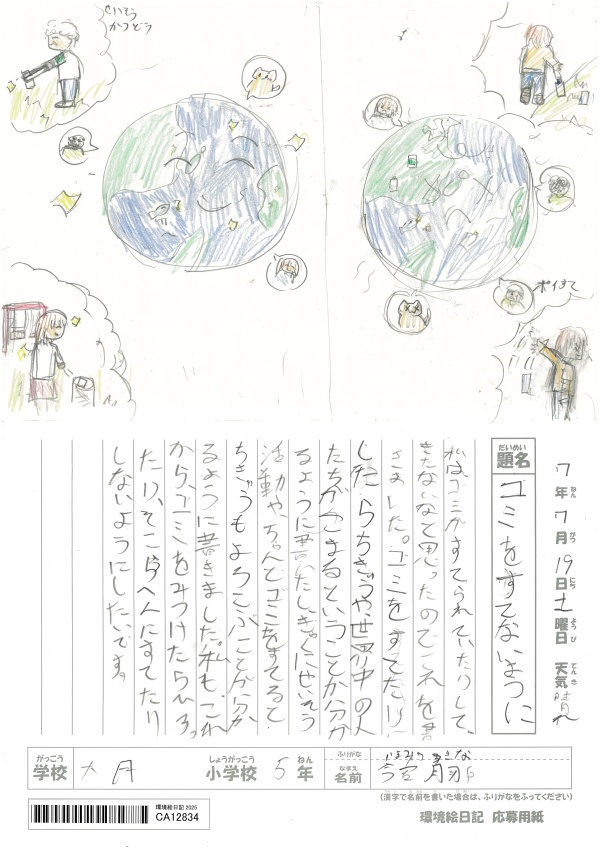 せいそう
かつどう
ポイすて
7年7月19日土曜日 天気晴れ
ねん がつ にち ようび てんき
だいめい
題名
ゴミをすてないように
私は、ゴミがすてられていたりして、
きたないなて思ったのでこれを書
きました。ゴミをすてたり
したらちきゅうや、世界中の人
たちがこまるということが分か
るように書いたし、ぎゃくにせいそう
活動や、ちゃんとゴミをすてると
ちきゅうもよろこぶことが分か
るように書きました。私も、これ
から、ゴミをみつけたらひろっ
たり、そこらへんにすてたり
しないようにしたいです。
がっこう
学校
大月
しょうがっこう
小学校
5年
ねん
ふりがな
なまえ
名前
(漢字で名前を書いた場合は、ふりがなをふってください)
環境絵日記2025
CA12834
環境絵日記 応募用紙